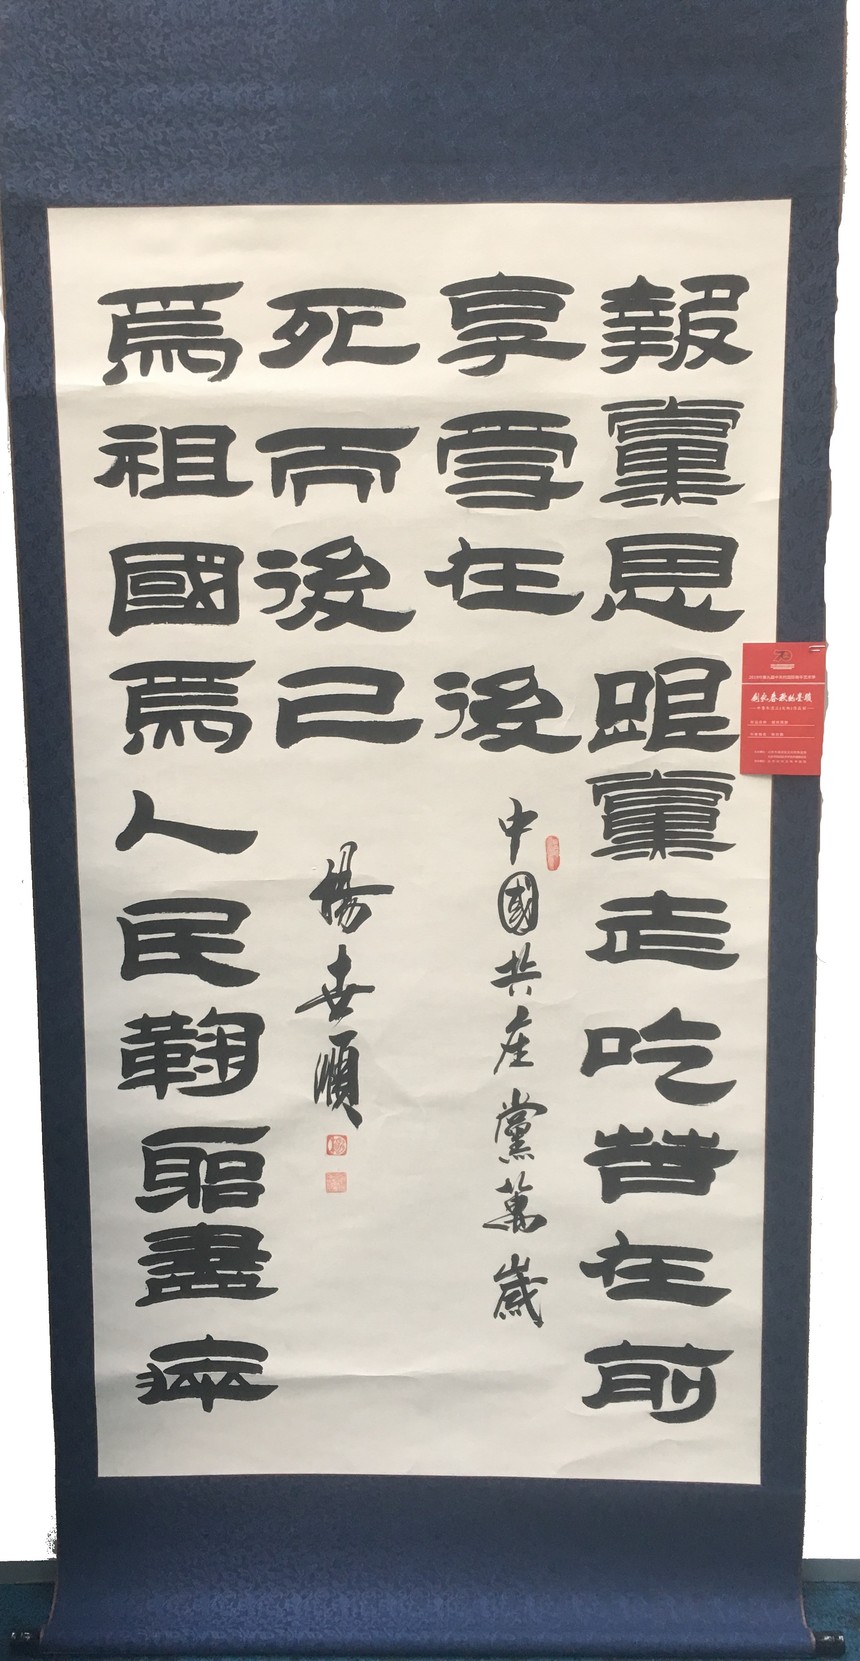 報黨恩跟黨走吃苦在前
享受在後
中國共产黨萬歲
爲祖國爲人民鞠躬盡瘁
死而後已
楊世順